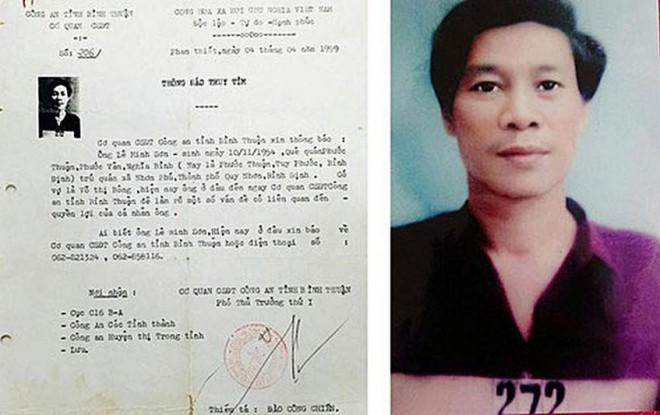 CÔNG AN TỈNH BÌNH THUẬN
CƠ QUAN CSĐT
-:-
Số: 206/
CỘNG HÒA XÃ HỘI CHỦ NGHĨA VIỆT NAM
Độc lập - Tự do - Hạnh phúc
-----ooOoo-----
Phan thiết, ngày 04 tháng 04 năm 1999
THÔNG BÁO TRUY TÌM
-----
Cơ quan CSĐT Công an tỉnh Bình Thuận xin thông báo :
Ông Lê Minh Sơn - sinh ngày 10/11/1954 ,Quê quán Phước
Thuận,Phước Vân,Nghĩa Bình ( Nay là Phước Thuận,Tuy Phước, Bình
Định) trú quán xã Nhơn Phú,Thành phố Quy Nhơn,Bình Định . Có
vợ là Võ thị Bông .Hiện nay ông ở đâu đến ngay Cơ quan CSĐT Công
an tỉnh Bình Thuận để làm rõ một số vấn đề có liên quan đến -
quyền lợi của cá nhân ông .
Ai biết ông Lê minh Sơn,Hiện nay ở đâu xin báo về
Cơ quan CSĐT Công an tỉnh Bình Thuận hoặc điện thoại số :
062-821324 , 062-858116.
Nơi nhận :
- Cục C16 B-A
- Công An Các Tỉnh thành
- Công an Huyện thị Trong tỉnh
- Lưu.
CƠ QUAN CSĐT CÔNG AN TỈNH BÌNH THUẬN
Phó Thủ Trưởng thứ I
Thiếu tá : ĐÀO CÔNG CHIẾN.
272